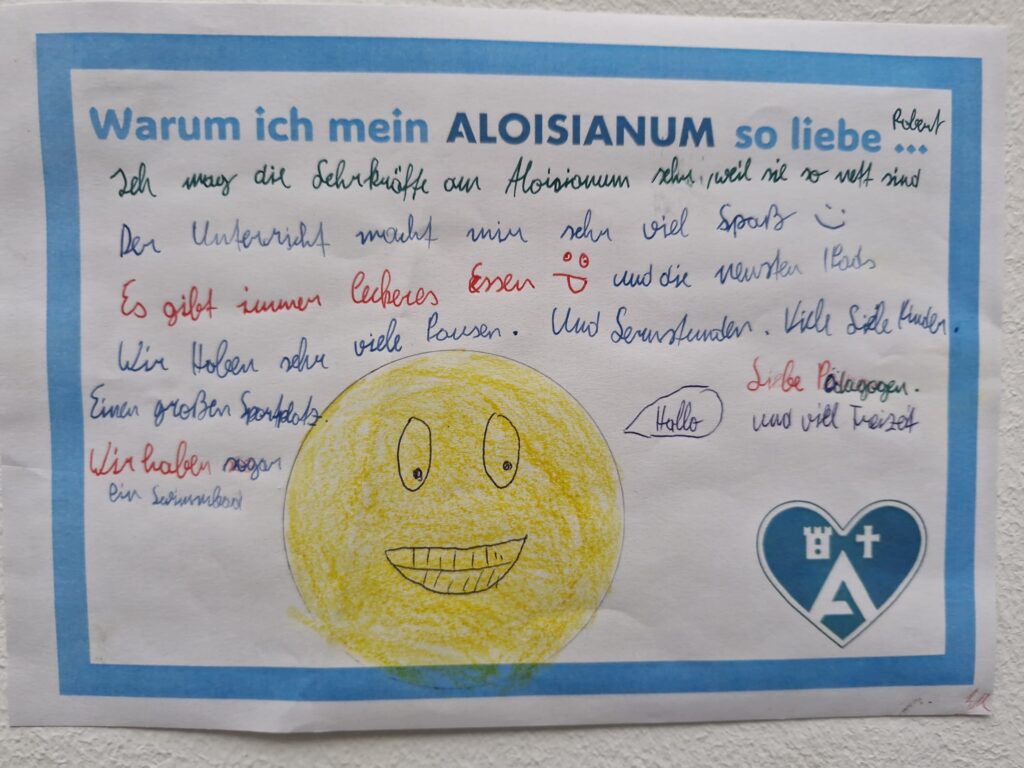 Warum ich mein ALOISIANUM so liebe ...
Robert
Ich mag die Lehrkräffte am Aloisianum sehr, weil sie so nett sind
Der Unterricht macht mir sehr viel Spaß
Es gibt immer leckeres Essen und die neusten IPads
Wir Haben sehr viele Pausen. Und Lernstunden. Viele Liebe Kinder.
Einen großen Sportplatz.
Liebe Pädagogen.
Hallo
und viel Freizeit
Wir haben sogar
ein Swimmbad